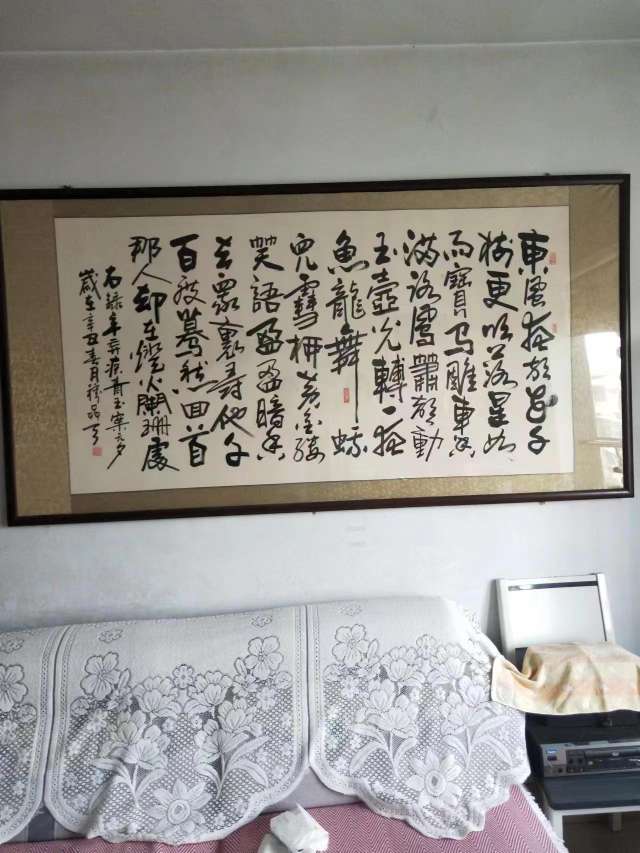 東風夜放花千
樹更吹落星如
雨寶马雕車香
滿路鳳簫聲動
玉壺光轉一夜
魚龍舞蛾
兒雪柳黄金縷
笑語盈盈暗香
去眾裏尋他千
百度驀然回首
那人却在燈火闌珊處
右録辛弃疾青玉案元夕
歲在辛丑春月